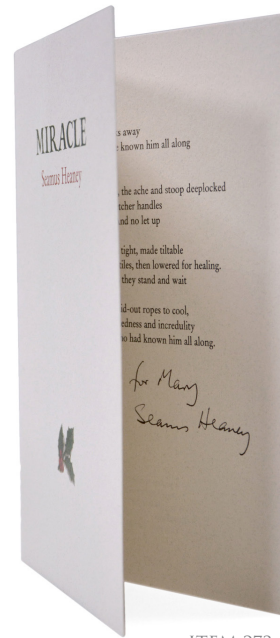 MIRACLE
Seamus Heaney
away
known him all along
, the ache and stoop deeplocked
tcher handles
nd no let up
tight, made tiltable
tiles, then lowered for healing.
they stand and wait
id-out ropes to cool,
edness and incredulity
o had known him all along.
for Mary
Seamus Heaney